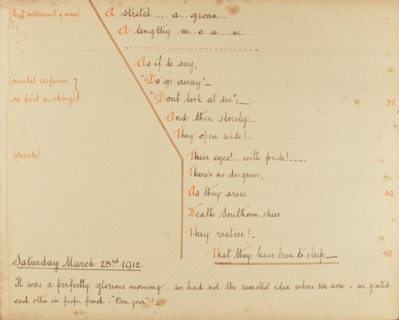 A stretch.... a groan..
A lengthy m.o.a.n.
As if to say,
"Do go away"_
(mental confusion
on first awakening)
"Dont look at me";_
35
And then slowly..
They open wide!_
(awake)
Their eyes!.. with pride!....
There's no disguise,
As they arise
40.
'Neath Southern skies
They realise!.
That they have been to sleep._
45.
Saturday March 23rd 1912.
It was a perfectly glorious morning - we had not the remotest idea where we were - we greeted
each other in proper french - "Bon jour"!